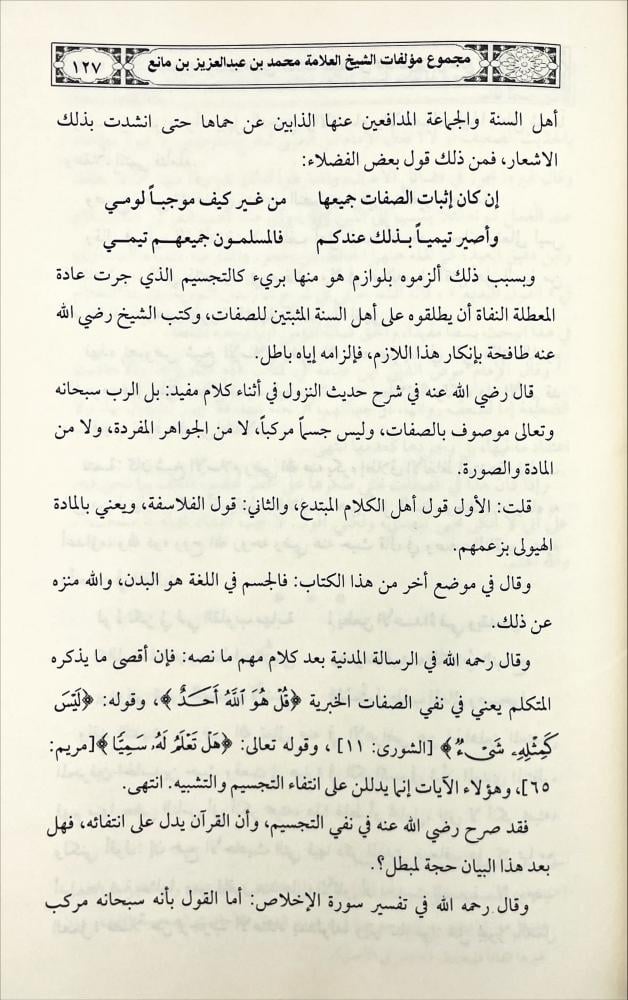 مجموع مؤلفات الشيخ العلامة محمد بن عبدالعزيز بن مانع
١٢٧
أهل السنة والجماعة المدافعين عنها الذابين عن حماها حتى انشدت بذلك
الاشعار، فمن ذلك قول بعض الفضلاء:
إن كان إثبات الصفات جميعها من غير كيف موجباً لومي
وأصير تيمياً بذلك عندكم فالمسلمون جميعهم تيمي
وبسبب ذلك ألزموه بلوازم هو منها بريء كالتجسيم الذي جرت عادة
المعطلة النفاة أن يطلقوه على أهل السنة المثبتين للصفات، وكتب الشيخ رضي الله
عنه طافحة بإنكار هذا اللازم، فإلزامه إياه باطل.
قال رضي الله عنه في شرح حديث النزول في أثناء كلام مفيد: بل الرب سبحانه
وتعالى موصوف بالصفات، وليس جسماً مركباً، لا من الجواهر المفردة، ولا من
المادة والصورة.
قلت: الأول قول أهل الكلام المبتدع، والثاني: قول الفلاسفة، ويعني بالمادة
الهيولى بزعمهم.
وقال في موضع أخر من هذا الكتاب: فالجسم في اللغة هو البدن، والله منزه
عن ذلك.
وقال رحمه الله في الرسالة المدنية بعد كلام مهم ما نصه: فإن أقصى ما يذكره
المتكلم يعني في نفي الصفات الخبرية ﴿قُلْ هُوَ اللَّهُ أَحَدٌ﴾، وقوله: ﴿لَيْسَ
كَمِثْلِهِ شَيْءٌ﴾ [الشورى: ١١]، وقوله تعالى: ﴿هَلْ تَعْلَمُ لَهُ سَمِيًّا﴾[مريم:
٦٥]، وهؤلاء الآيات إنما يدللن على انتفاء التجسيم والتشبيه. انتهى.
فقد صرح رضي الله عنه في نفي التجسيم، وأن القرآن يدل على انتفائه، فهل
بعد هذا البيان حجة لمبطل؟.
وقال رحمه الله في تفسير سورة الإخلاص: أما القول بأنه سبحانه مركب